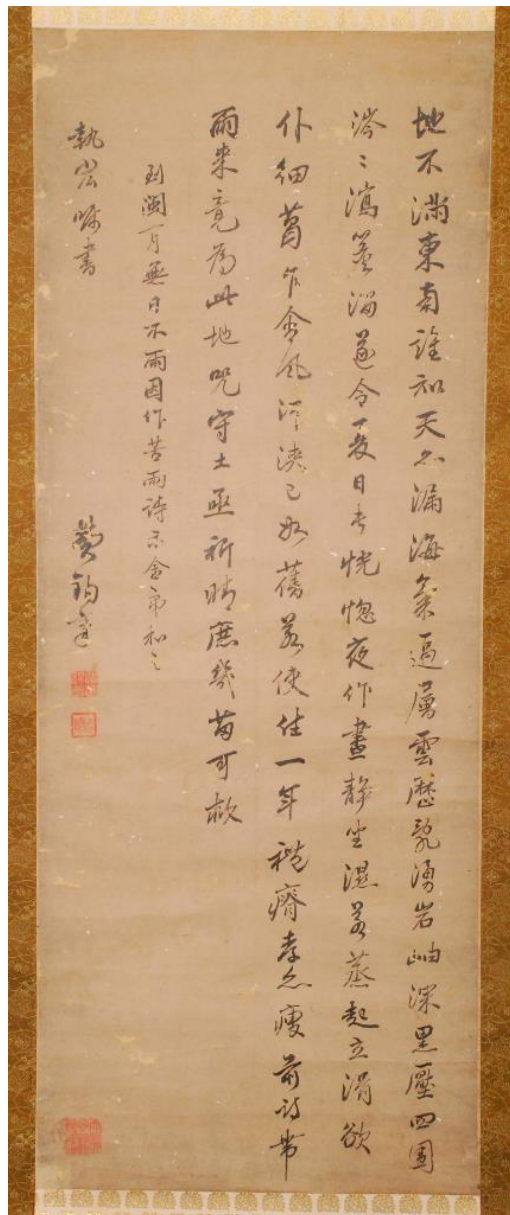 地不滿東南誰知天亦漏海氣逼層雲歷亂湧岩岫深黑壓四圍
涔〻瀉簷溜遂令夏日長恍惚夜作晝靜坐濕若蒸起立滑欲
仆細葛乍含風浹已如舊若使住一年亦瘦前時帶
雨來竟為此地咒守土亟祈晴庶幾苗可救
到閩一月無日不雨因作苦雨詩示舍弟和之
執岩囑書
鈞